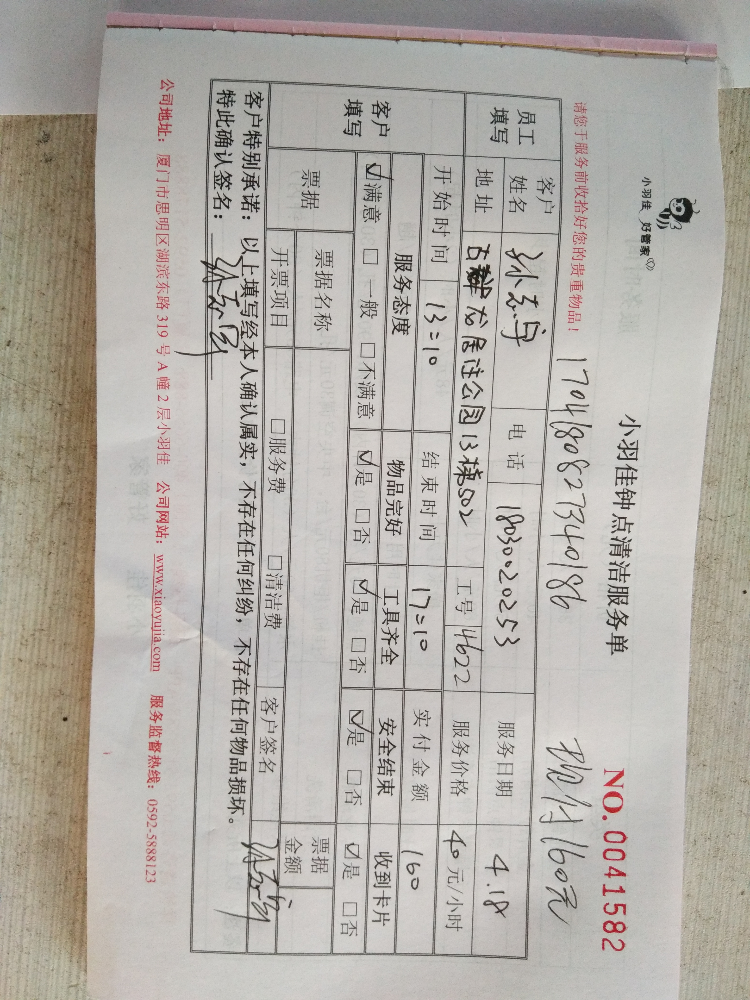 小羽佳 好管家
小羽佳钟点清洁服务单
NO. 0041582
请您于服务前收拾好您的贵重物品！
170418082734018b
现付160元
员工填写
客户姓名
电话 18030020253
服务日期 4.18
地址 古龙居住公园13栋502
工号 4622
服务价格 40元/小时
开始时间 13=10
结束时间 17=10
实付金额 160
客户填写
服务态度 物品完好 工具齐全 安全结束 收到卡片
☑满意 □一般 □不满意 ☑是 □否 ☑是 □否 ☑是 □否 ☑是 □否
票据
票据名称
票据金额
开票项目 □服务费 □清洁费 客户签名
客户特别承诺：以上填写经本人确认属实，不存在任何纠纷，不存在任何物品损坏。
特此确认签名：
公司地址：厦门市思明区湖滨东路 319 号 A 幢 2 层小羽佳 公司网站：www.xiaoyujia.com 服务监督热线：0592-5888123